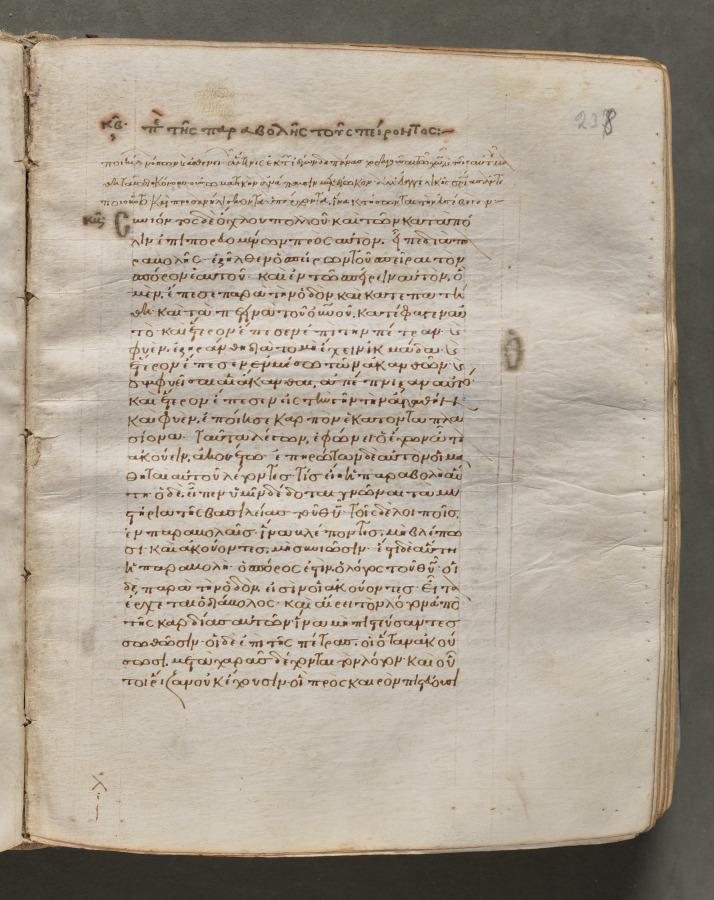 κβ· πε τῆς παραβολῆς τοῦ σπείροντος:
238
Συνιόντος δὲ ὄχλου πολλοῦ καὶ τῶν κατα πό
λιν ἐπιπορευομένων πρὸς αὐτὸν, εἶπε διὰ πα
ραβολῆς· ἐξῆλθεν ὁ σπείρων τοῦ σπεῖραι τὸν
σπόρον ἑαυτοῦ· καὶ ἐν τῶ σπείρειν αὐτὸν, ὃ
μὲν, ἔπεσε παρὰ τὴν ὁδὸν, καὶ κατεπατή
θη· καὶ τὰ πετεινὰ τοῦ οὐνοῦ, κατέφαγεν αὐ
τό· καὶ ἕτερον ἔπεσεν ἐπὶ τὴν πέτραν· καὶ
φυὲν, ἐξηράνθη διὰ τὸ μὴ ἔχειν ἰκμάδα· καὶ
ἕτερον ἔπεσεν ἐν μέσω τῶν ἀκανθῶν· καὶ
συμφυεῖσαι αἱ ἄκανθαι, ἀπέπνιξαν αὐτό·
καὶ ἕτερον ἔπεσεν εἰς τὴν γῆν τὴν ἀγαθήν·
καὶ φυὲν, ἐποίησε καρπὸν ἑκατονταπλα
σίονα· ταῦτα λέγων, ἐφώνει· ὁ ἔχων ὦτα
ἀκούειν, ἀκουέτω· ἐπηρώτων δὲ αὐτὸν οἱ μα
θηταὶ αὐτοῦ λέγοντες· τίς εἴη ἡ παραβολὴ αὕ
τη· ὁ δὲ, εἶπεν· ὑμῖν δέδοται γνῶναι τὰ μυ
στήρια τῆς βασιλείας τοῦ θυ· τοῖς δὲ λοιποῖς,
ἐν παραβολαῖς· ἵνα βλέποντες, μὴ βλέπω
σι· καὶ ἀκούοντες, μὴ συνιῶσιν· ἔστι δὲ αὕτη
ἡ παραβολή· ὁ σπόρος ἐστὶν, ὁ λόγος τοῦ θυ· οἱ
δὲ παρὰ τὴν ὁδὸν, εἰσὶν οἱ ἀκούοντες· εἶτα
ἔρχεται ὁ διάβολος· καὶ αἴρει τὸν λόγον ἀπὸ
τῆς καρδίας αὐτῶν· ἵνα μὴ πιστεύσαντες
σωθῶσιν· οἱ δὲ ἐπὶ τῆς πέτρας, οἳ ὅταν ἀκού
σωσι, μετὰ χαρᾶς δέχονται τὸν λόγον· καὶ οὗ
τοι ῥίζαν οὐκ ἔχουσιν· οἳ πρὸς καιρὸν πιστεύουσι